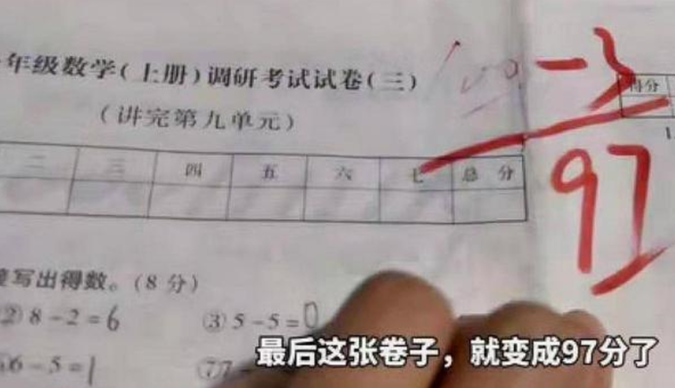 年级数学(上册)调研考试试卷(三)
-3
得分
(讲完第九单元)
97
二 三 四 五 六 七 总分
写出得数。(8分)
② 8-2=6 ③ 5-5=0
6-5=1 ⑦7-
最后这张卷子，就变成97分了